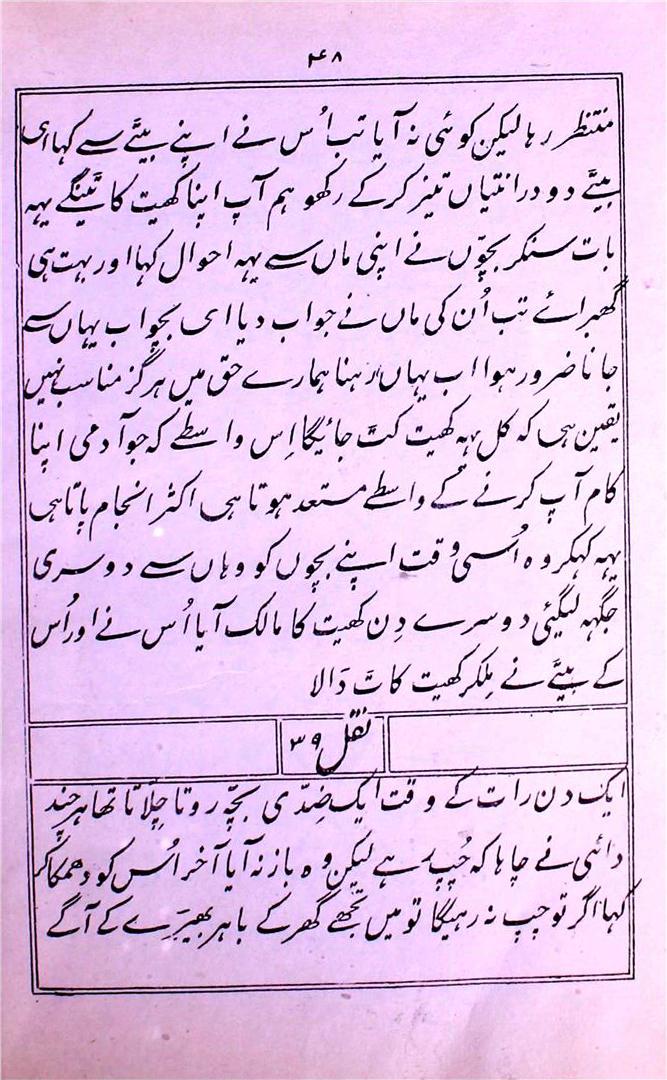 ۴۸
منتظر رہا لیکن کوئی نہ آیا تب اُس نے اپنے بیٹے سے کہا ای
بیٹے دو درانتیاں تیز کرکے رکھو ہم آپ اپنا کھیت کاٹینگے یہہ
بات سنکر بچّوں نے اپنی ماں سے یہہ احوال کہا اور بہت ہی
گھبرائے تب اُن کی ماں نے جواب دیا ای بچّو اب یہاں سے
جانا ضرور ہوا اب یہاں رہنا ہمارے حق میں ہرگز مناسب نہیں
یقین ہی کہ کل یہہ کھیت کٹ جائیگا اِس واسطے کہ جو آدمی اپنا
کام آپ کرنے کے واسطے مستعد ہوتا ہی اکثر انجام پاتا ہی
یہہ کہکر وہ اُسی وقت اپنے بچّوں کو وہاں سے دوسری
جگہہ لیگئی دوسرے دِن کھیت کا مالک آیا اُس نے اور اُس
کے بیٹے نے مِلکر کھیت کاٹ ڈالا
نقل ۳۹
ایک دن رات کے وقت ایک ضِدّی بچّہ روتا چِلّاتا تھا ہر چند
دائی نے چاہا کہ چُپ رہے لیکن وہ باز نہ آیا آخر اُس کو دھمکا کر
کہا اگر تو چپ نہ رہیگا تو میں تجھے گھر کے باہر بھیڑیے کے آگے